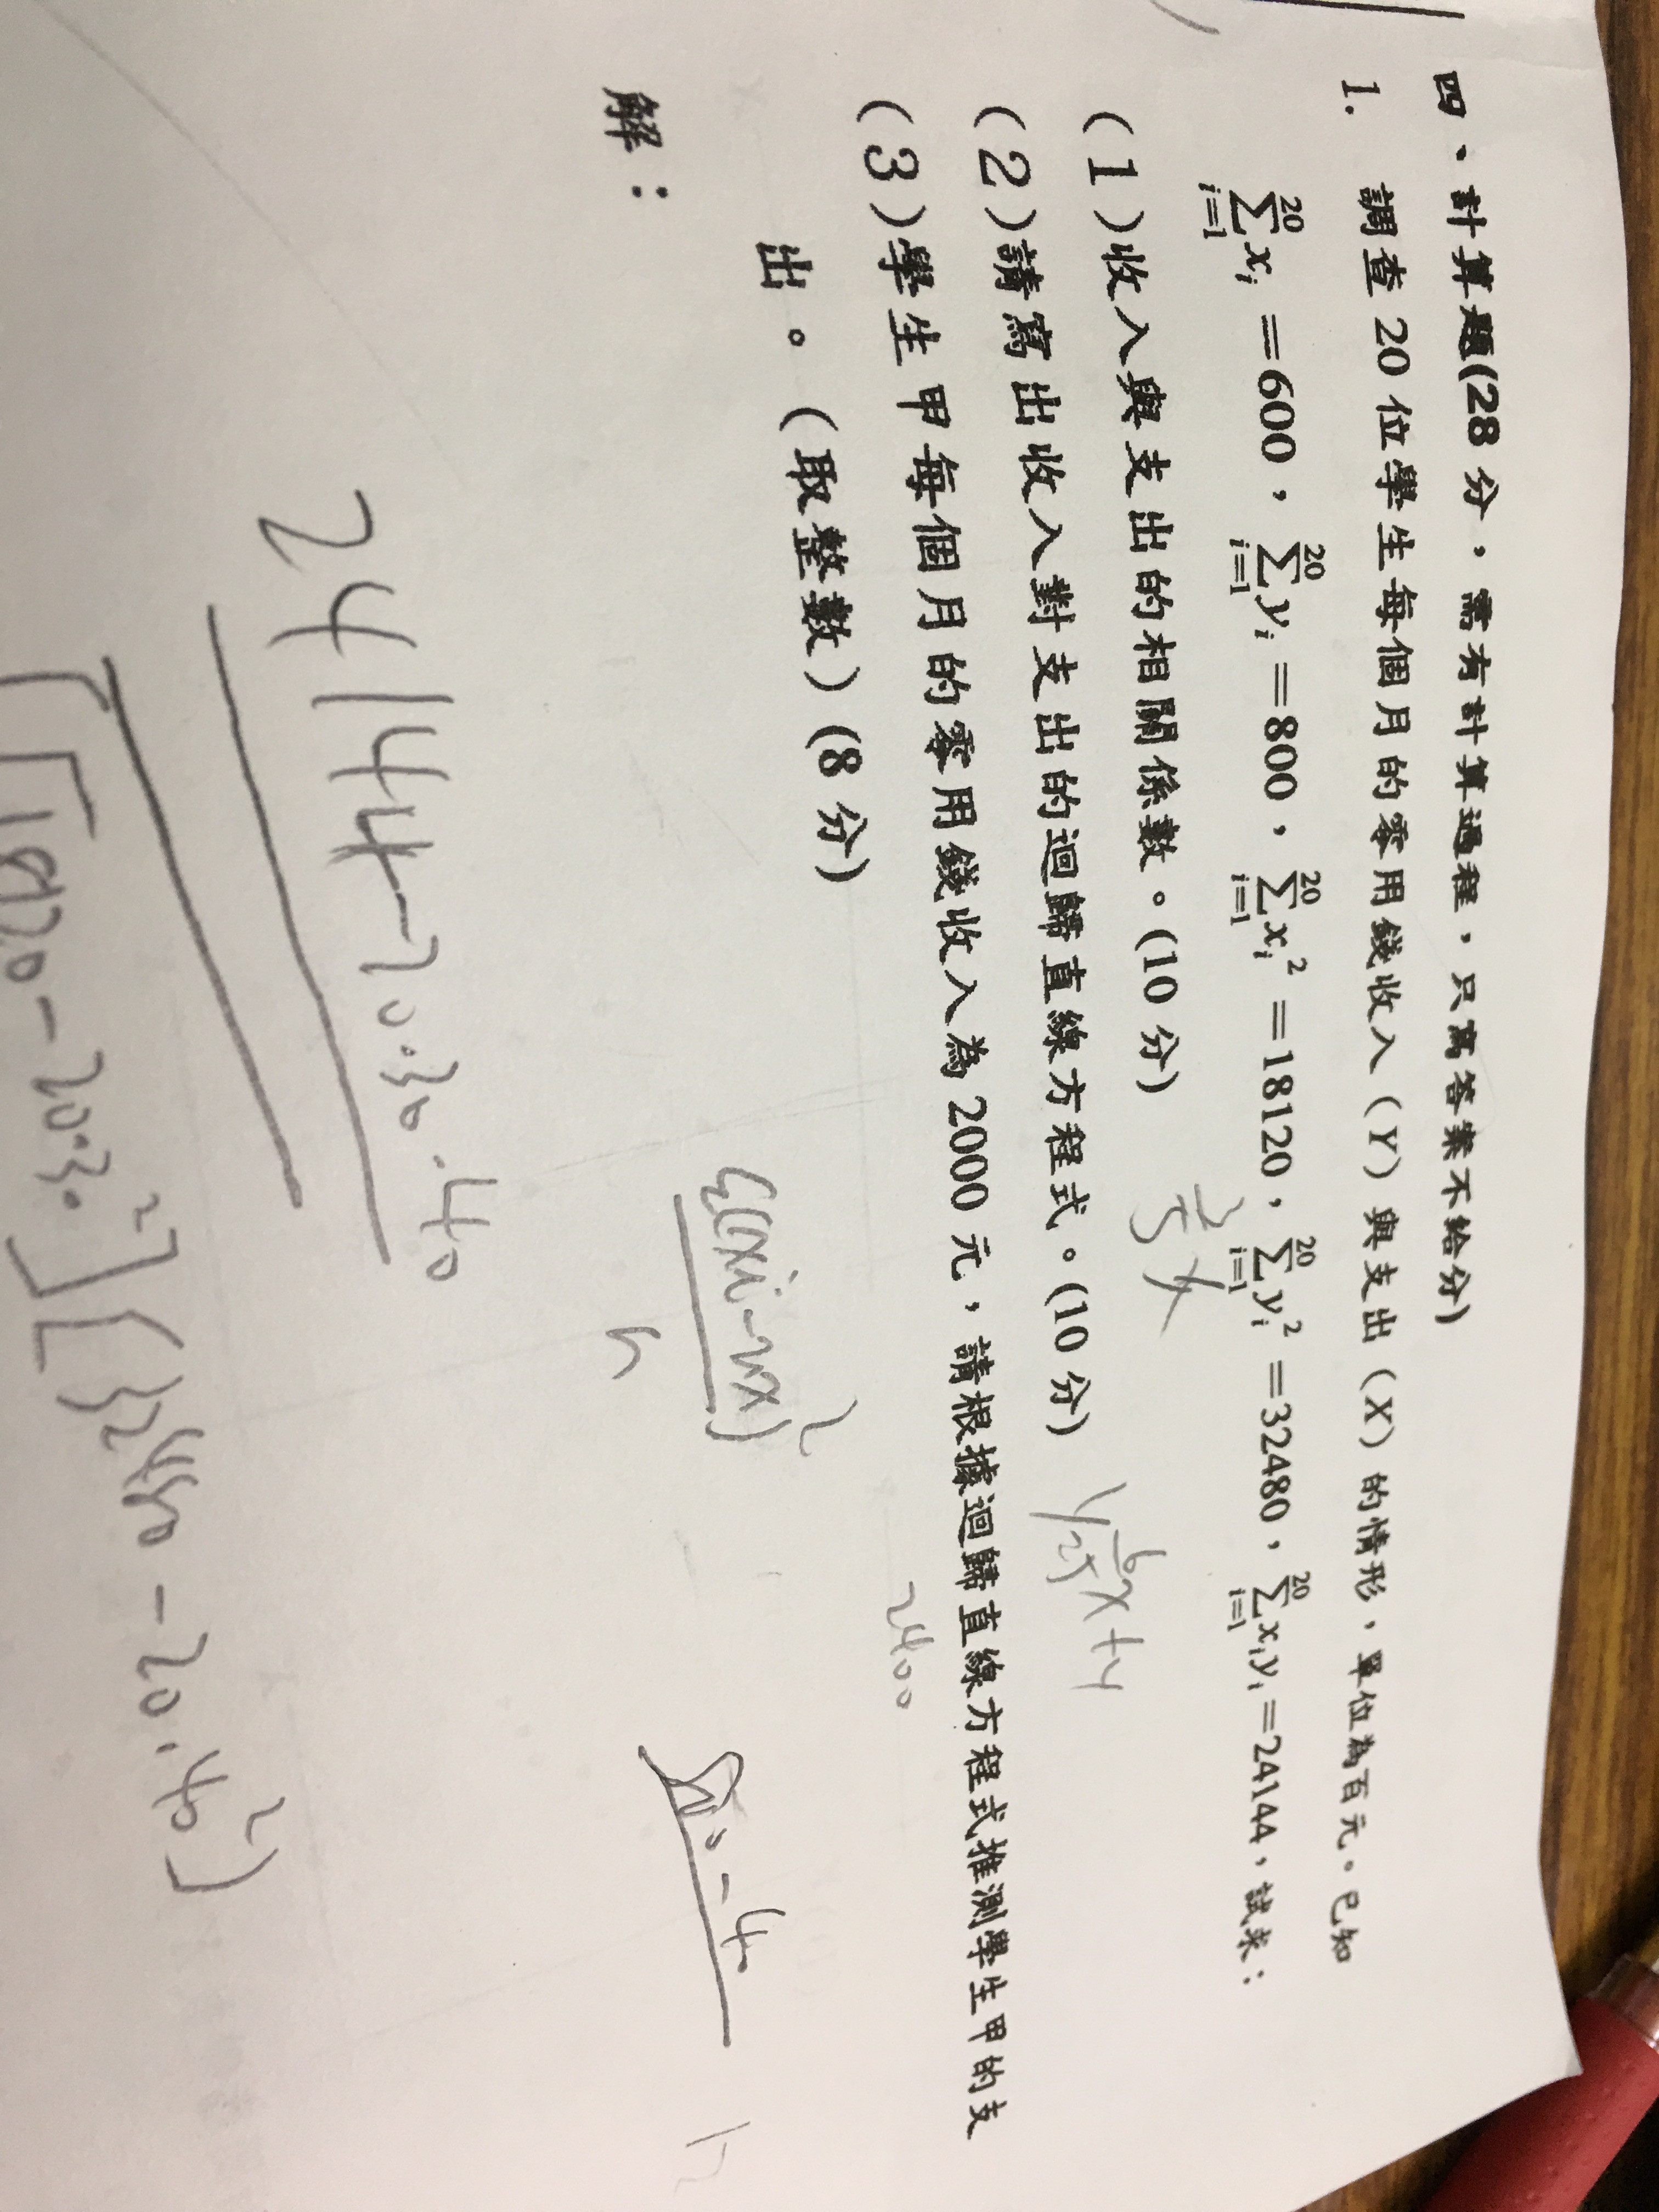 四、計算題(28分，需有計算過程，只寫答案不給分)
1. 調查20位學生每個月的零用錢收入（Y）與支出（X）的情形，單位為百元。已知
\sum_{i=1}^{20} x_i =600，\sum_{i=1}^{20} y_i =800，\sum_{i=1}^{20} x_i^2 =18120，\sum_{i=1}^{20} y_i^2 =32480，\sum_{i=1}^{20} x_i y_i =24144，試求：
(1)收入與支出的相關係數。(10分)
(2)請寫出收入對支出的迴歸直線方程式。(10分)
(3)學生甲每個月的零用錢收入為2000元，請根據迴歸直線方程式推測學生甲的支
出。(取整數)(8分)
解：
2400
24144-20·30·40
√[18120-20·30²][32480-20·40²]